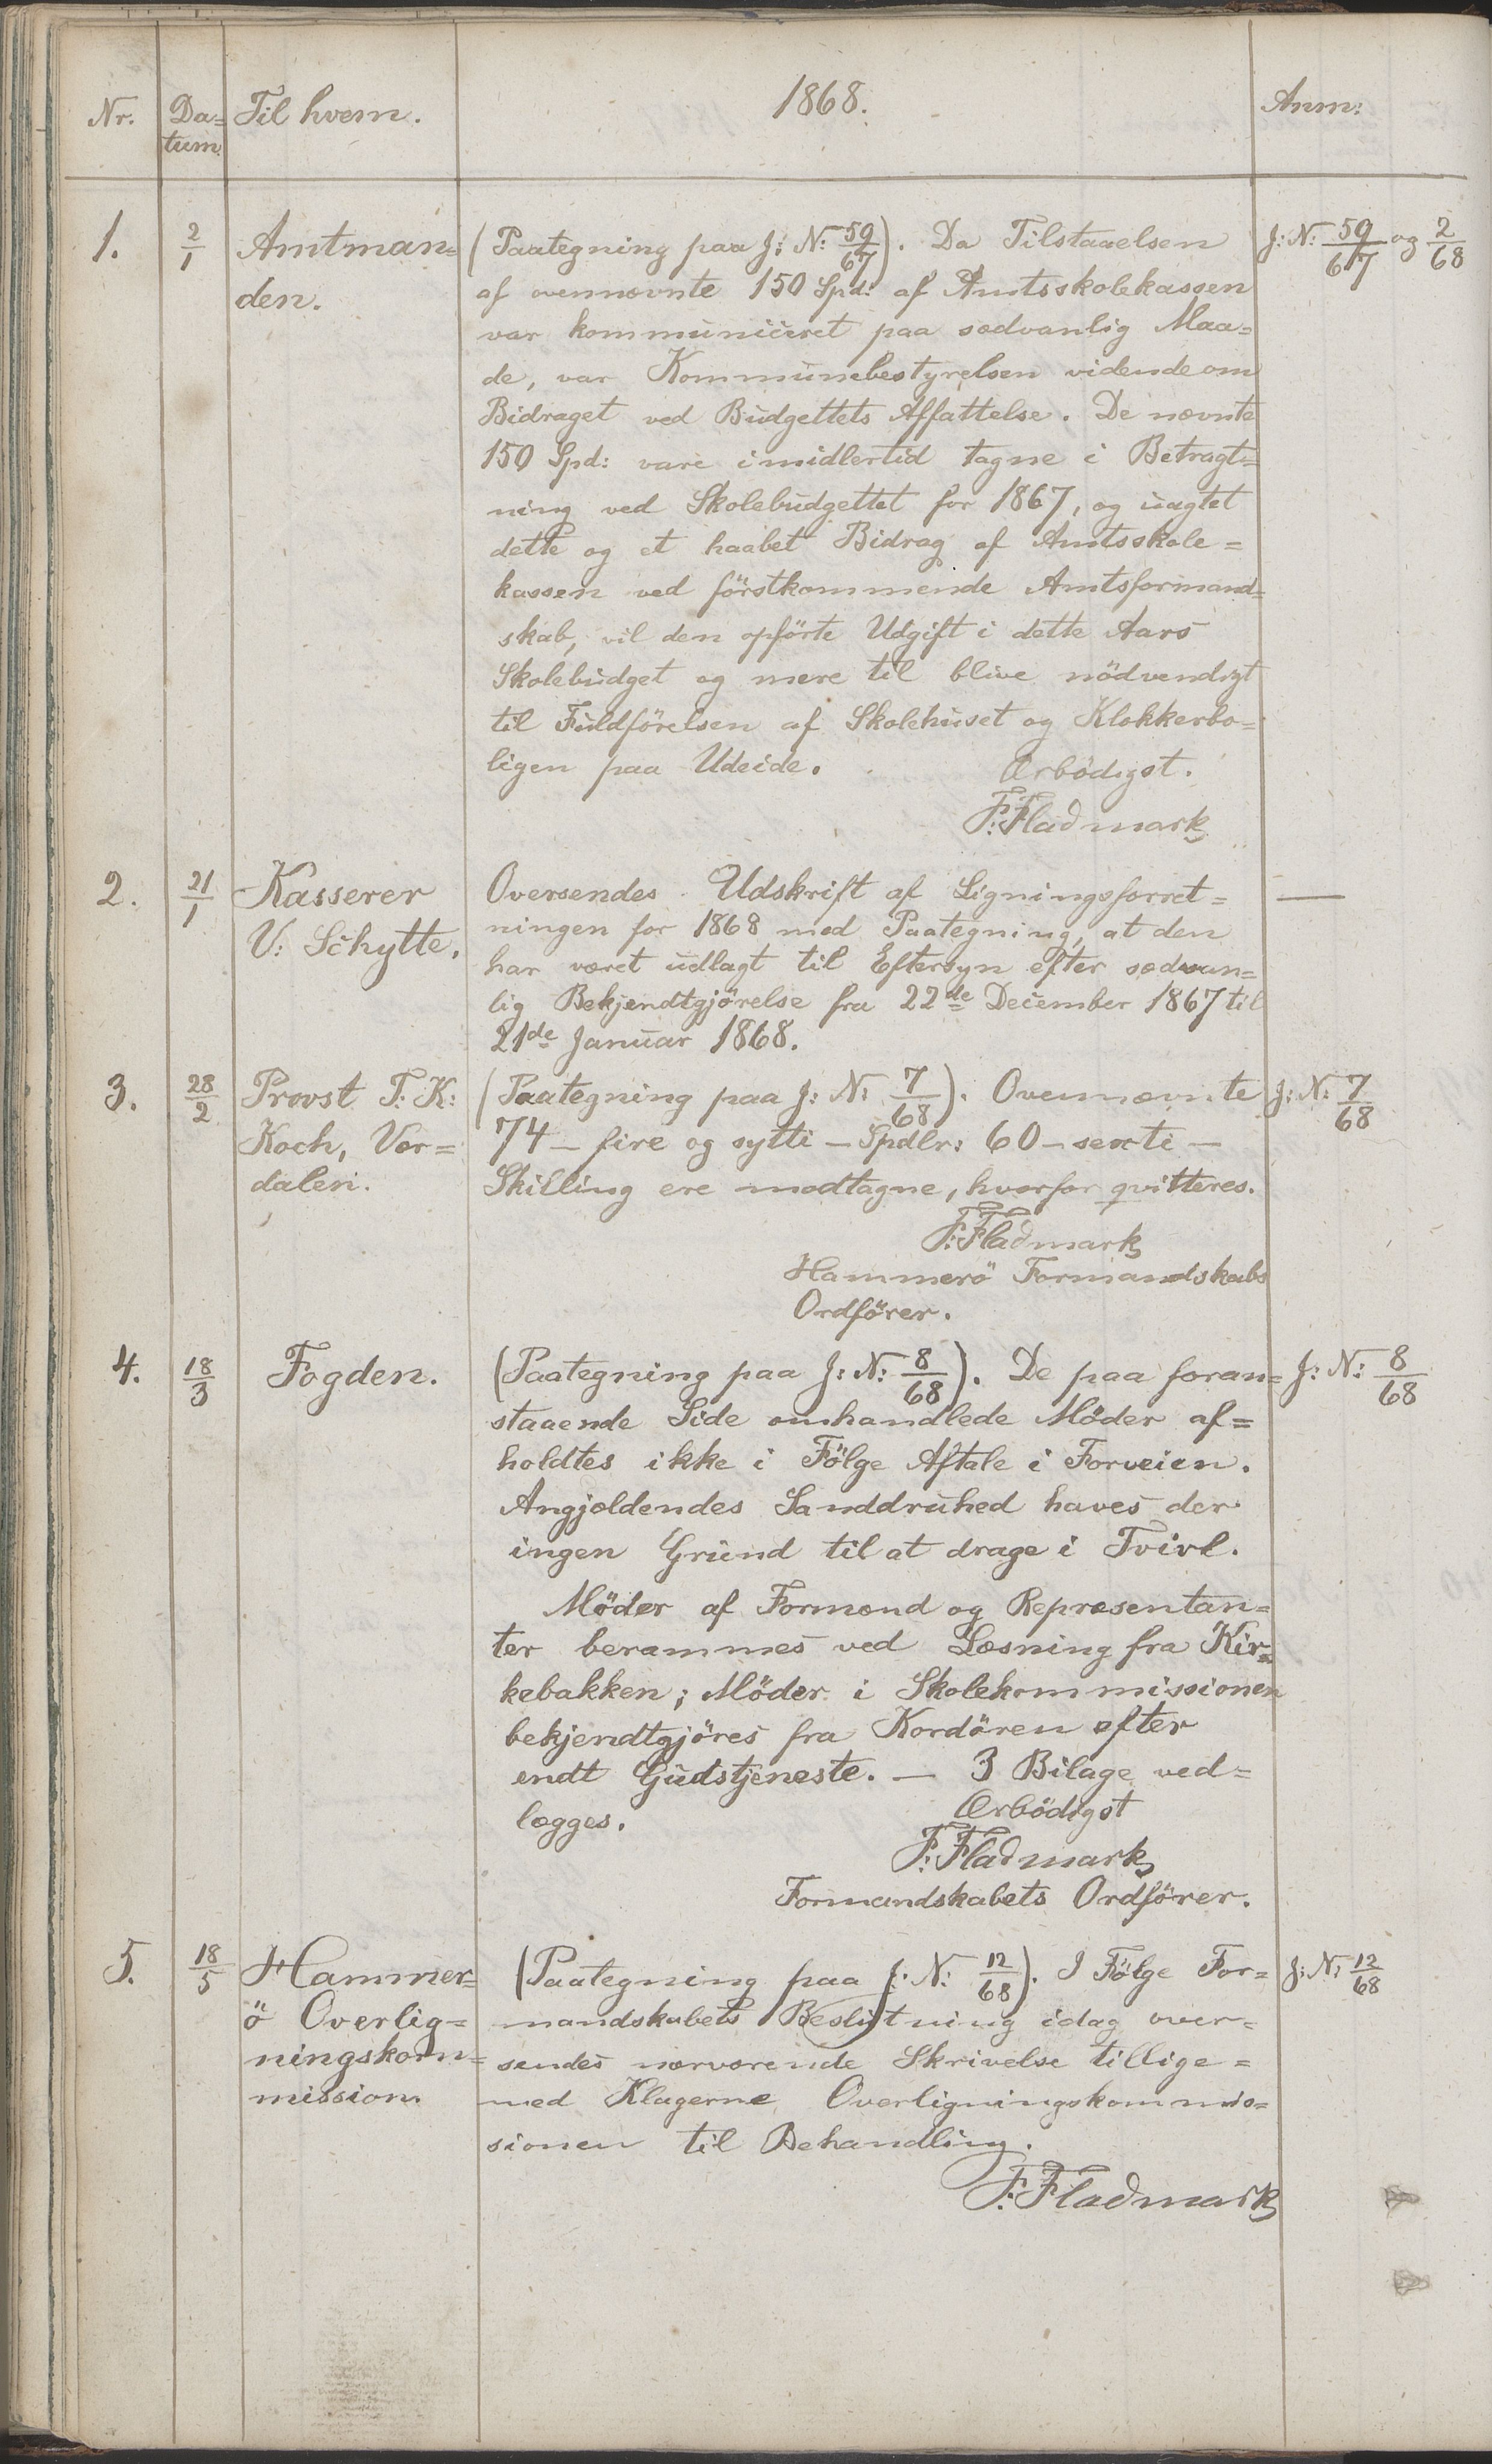 Nr. Da= Til hvem. 1868. Anm:
tum.
1. 2/1 Amtman= (Paategning paa J: N: 59/67). Da Tilstaaelsen J: N: 59/67 og 2/68
den. af ovennævnte 150 Spd: af Amtsskolekassen
var kommuniceret paa sædvanlig Maa=
de, var Kommunebestyrelsen vidende om
Bidraget ved Budgettets Affattelse. De nævnte
150 Spd: vare imidlertid tagne i Betragt=
ning ved Skolebudgettet for 1867, og uagtet
dette og et haabet Bidrag af Amtsskole=
kassen ved förstkommende Amtsformand=
skab, vil den opförte Udgift i dette Aars
Skolebudget og mere til blive nödvendigt
til Fuldförelsen af Skolehuset og Klokkerbo=
ligen paa Udeide. Ærbödigst.
F. Fladmark
2. 21/1 Kasserer Oversendes Udskrift af Ligningsforret= —
V: Schytte. ningen for 1868 med Paategning, at den
har været udlagt til Eftersyn efter sædvan=
lig Bekjendtgjörelse fra 22de December 1867 til
21de Januar 1868.
3. 28/2 Provst T: K: (Paategning paa J: N: 7/68). Ovennævnte J: N: 7/68
Koch, Vær= 74 – fire og sytti – Spdlr: 60 – sexti –
dalen. Skilling ere modtagne, hvorfor qvitteres.
F. Fladmark
Hammerö Formandskabs
Ordförer.
4. 18/3 Fogden. (Paategning paa J: N: 8/68). De paa foran= J: N: 8/68
staaende Side omhandlede Möder af=
holdtes ikke i Fölge Aftale i Forveien.
Angjældendes Sanddruhed haves der
ingen Grund til at drage i Tvivl.
Möder af Formænd og Repræsentan=
ter berammes ved Læsning fra Kir=
kebakken; Möder i Skolekommissionen
bekjendtgjöres fra Kordören efter
endt Gudstjeneste. — 3 Bilage ved=
lægges. Ærbödigst
F. Fladmark
Formandskabets Ordförer.
5. 18/5 Hammer= (Paategning paa J: N: 12/68). I Fölge For= J: N: 12/68
ö Overlig= mandskabets Beslutning idag over=
ningskom= sendes nærværende Skrivelse tillige=
mission. med Klagerne Overligningskommis=
sionen til Behandling.
F. Fladmark